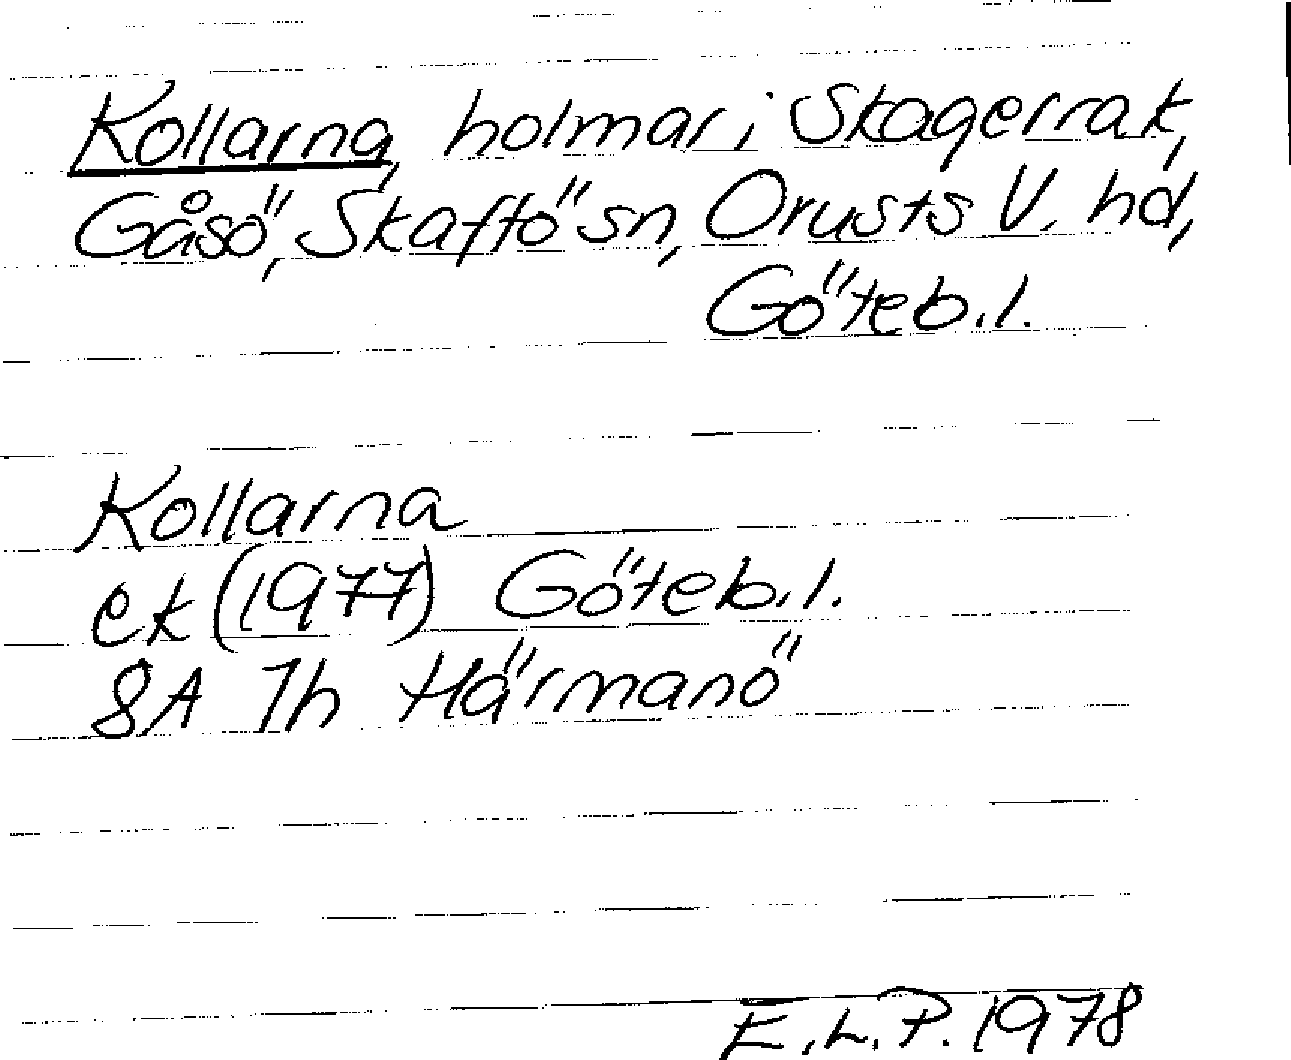 Kollarna, holmar i Skagerrak,
Gåsö, Skaftö sn, Orusts V. hd,
Göteb.l.
Kollarna
ek (1977) Göteb.l.
8A 7h Härmanö
E.L.P. 1978